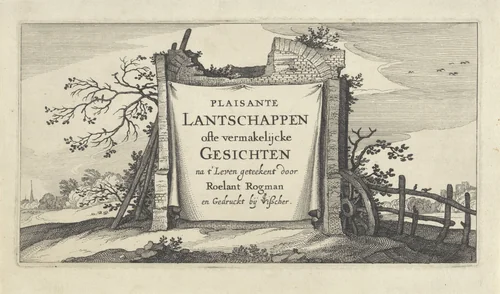 PLAISANTE
LANTSCHAPPEN
ofte vermakelijcke
GESICHTEN
na t'Leven geteekent door
Roelant Rogman
en Gedruckt bij Visscher.